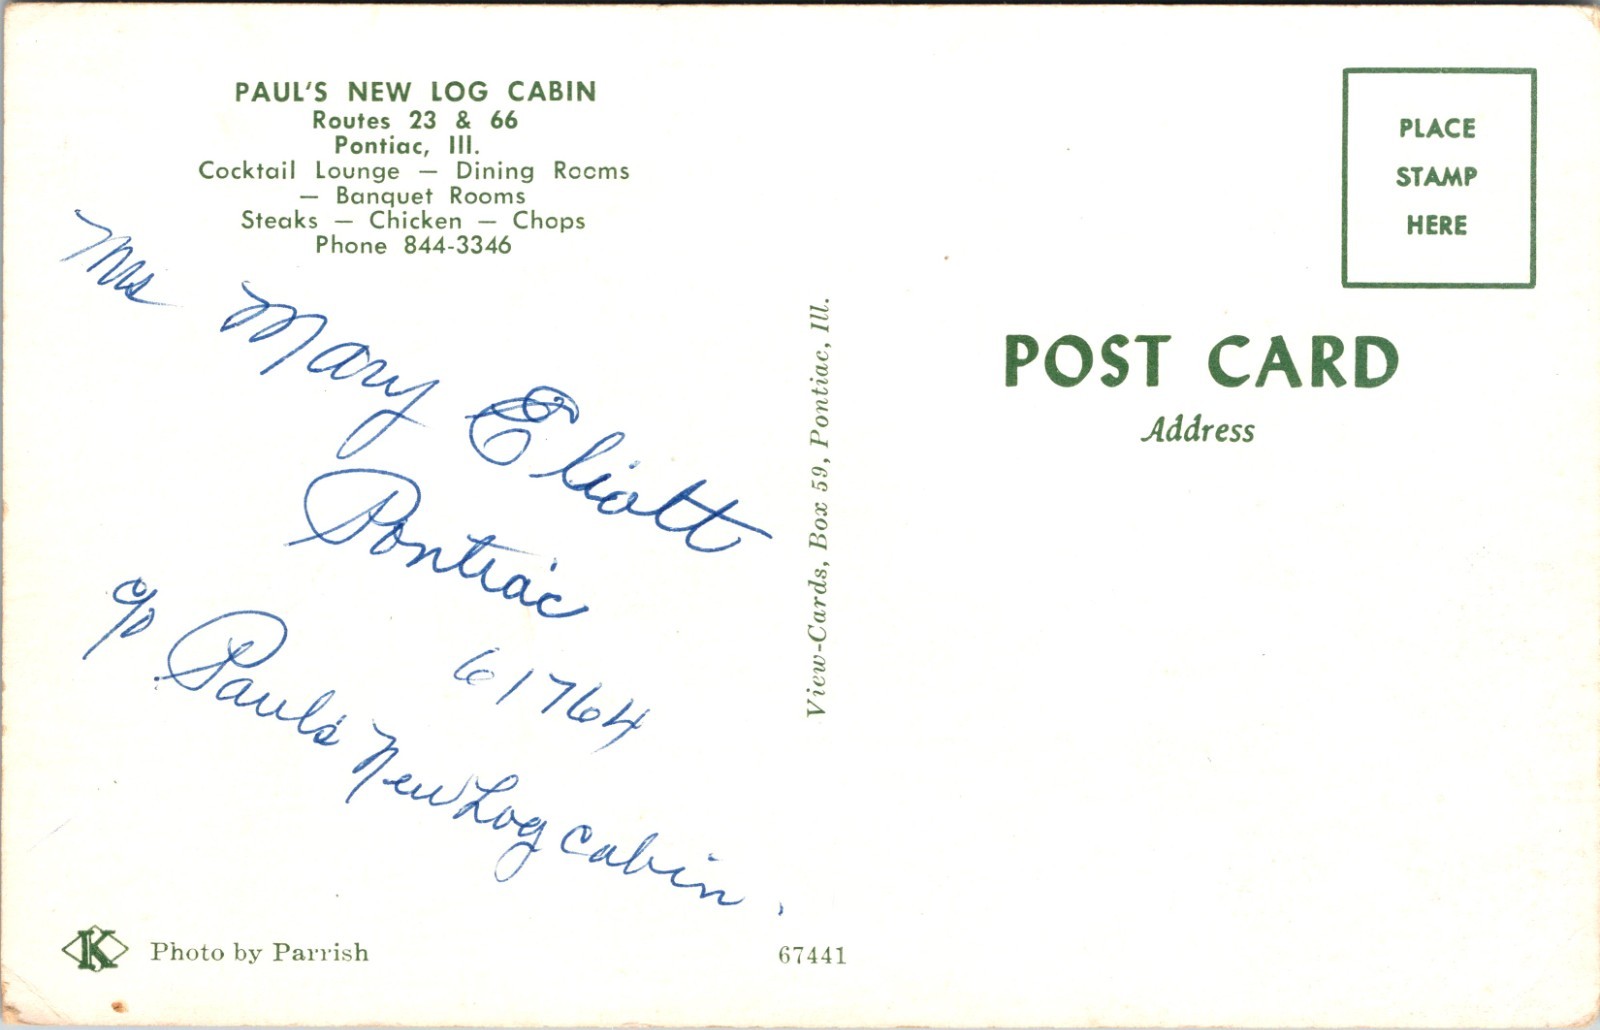 PAUL'S NEW LOG CABIN
Routes 23 & 66
Pontiac, Ill.
Cocktail Lounge — Dining Rooms
— Banquet Rooms
Steaks — Chicken — Chops
Phone 844-3346
Mrs Mary Eliott
Pontiac
61764
c/o Paul's New Log cabin.
K Photo by Parrish
View-Cards, Box 59, Pontiac, Ill.
67441
PLACE
STAMP
HERE
POST CARD
Address